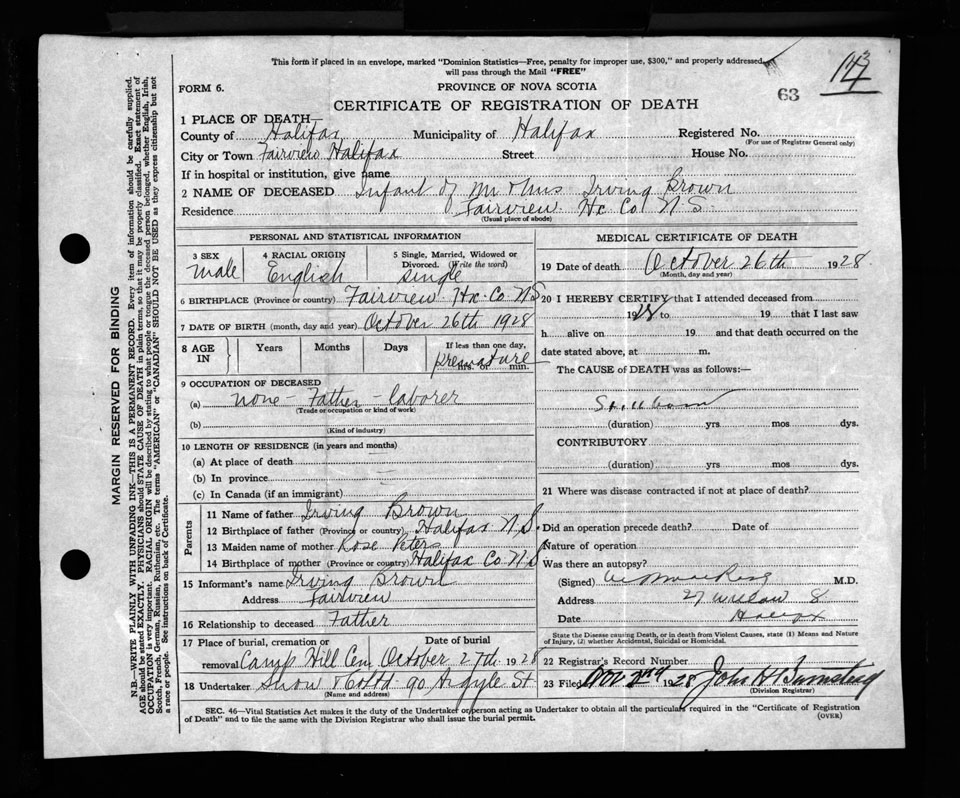 This form if placed in an envelope, marked "Dominion Statistics—Free, penalty for improper use, $300," and properly addressed,
will pass through the Mail "FREE"
FORM 6.
PROVINCE OF NOVA SCOTIA
63
CERTIFICATE OF REGISTRATION OF DEATH
1 PLACE OF DEATH
County of Halifax Municipality of Halifax Registered No.
(For use of Registrar General only)
City or Town Fairview Halifax Street House No.
If in hospital or institution, give name
2 NAME OF DECEASED Infant of Mr & Mrs Irving Brown
Residence Fairview Hx Co N S
(Usual place of abode)
PERSONAL AND STATISTICAL INFORMATION
3 SEX 4 RACIAL ORIGIN 5 Single, Married, Widowed or Divorced. (Write the word)
Male English Single
6 BIRTHPLACE (Province or country) Fairview Hx Co N S
7 DATE OF BIRTH (month, day and year) October 26th 1928
8 AGE IN Years Months Days If less than one day,
premature hrs. or min.
9 OCCUPATION OF DECEASED
(a) None - Father - laborer
(Trade or occupation or kind of work)
(b)
(Kind of industry)
10 LENGTH OF RESIDENCE (in years and months)
(a) At place of death
(b) In province
(c) In Canada (if an immigrant)
Parents
11 Name of father Irving Brown
12 Birthplace of father (Province or country) Halifax N.S.
13 Maiden name of mother Rose Peters
14 Birthplace of mother (Province or country) Halifax Co N S
15 Informant's name Irving Brown
Address Fairview
16 Relationship to deceased Father
17 Place of burial, cremation or removal Date of burial
Camp Hill Cem October 27th 1928
18 Undertaker Snow & Co Ltd 90 Argyle St.
(Name and address)
MEDICAL CERTIFICATE OF DEATH
19 Date of death October 26th 1928
(Month, day and year)
20 I HEREBY CERTIFY that I attended deceased from
1928 to 19 that I last saw
h alive on 19 and that death occurred on the
date stated above, at m.
The CAUSE of DEATH was as follows:—
Stillborn
(duration) yrs mos dys.
CONTRIBUTORY
(duration) yrs mos dys.
21 Where was disease contracted if not at place of death?
Did an operation precede death? Date of
Nature of operation
Was there an autopsy?
(Signed) M.D.
Address 27 Willow S
Date Halifax
State the Disease causing Death, or in death from Violent Causes, state (1) Means and Nature
of Injury, (2) whether Accidental, Suicidal or Homicidal.
22 Registrar's Record Number
23 Filed Nov 2nd 1928 John H
(Division Registrar)
SEC. 46—Vital Statistics Act makes it the duty of the Undertaker or person acting as Undertaker to obtain all the particulars required in the "Certificate of Registration
of Death" and to file the same with the Division Registrar who shall issue the burial permit.
(OVER)
MARGIN RESERVED FOR BINDING
N.B.—WRITE PLAINLY WITH UNFADING INK—THIS IS A PERMANENT RECORD. Every item of information should be carefully supplied.
AGE should be stated EXACTLY. PHYSICIANS should STATE CAUSE OF DEATH in plain terms, so that it may be properly classified. Exact statement of
OCCUPATION is very important. RACIAL ORIGIN will be described by stating to what people or tongue the deceased person belonged, whether English, Irish,
Scotch, French, German, Russian, Ruthenian, etc. The terms "AMERICAN" or "CANADIAN" SHOULD NOT BE USED as they express citizenship but not
a race or people. See instructions on back of Certificate.